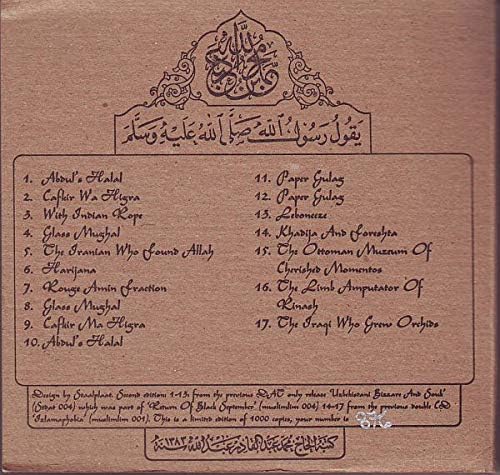 يقول رسول الله صلى الله عليه وسلم
1. Abdul's Halal
2. Cafkir Wa Higra
3. With Indian Rope
4. Glass Mughal
5. The Iranian Who Found Allah
6. Harijana
7. Rouge Amin Fraction
8. Glass Mughal
9. Cafkir Ma Higra
10. Abdul's Halal
11. Paper Gulag
12. Paper Gulag
13. Leboneeze
14. Khadija And Foreshta
15. The Ottoman Muzeum Of
Cherished Momentos
16. The Limb Amputator Of
Rinash
17. The Iraqi Who Grew Orchids
Design by Staalplaat. Second edition: 1-13: from the previous DAT only release Uzbekistani Bizzare And Souk'
(Stdat 004) which was part of 'Return Of Black September' (muslimlim 004) 14-17 from the previous double CD
'Islamaphobia' (muslimlim 001). This is a limited edition of 1000 copies, your number is
كتبه الحاج محمد عبد القادر عبد الله